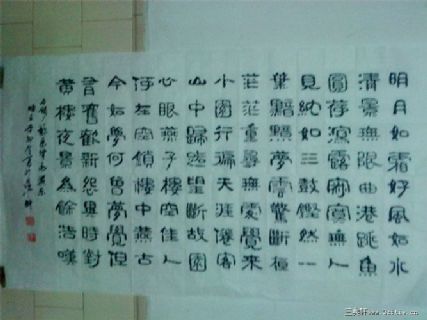 明月如霜好風如水
清景無限曲港跳魚
圓荷瀉露寂寞無人
見紞如三鼓鏗然一
葉黯黯夢雲驚斷夜
茫茫重尋無處覺來
小園行遍天涯倦客
山中歸路望斷故園
心眼燕子樓空佳人
何在空鎖樓中燕古
今如夢何曾夢覺但
有舊歡新怨異時對
黃樓夜景為餘浩嘆